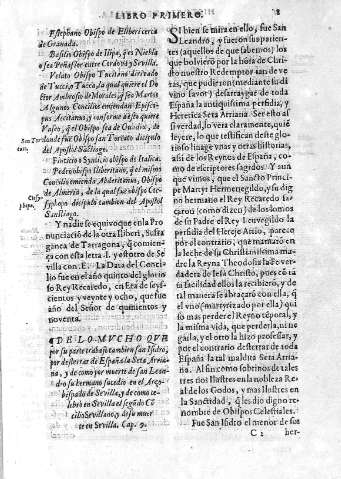 LIBRO PRIMERO. 8
Estephano Obispo de Elberi cerca
de Granada.
Basilio Obispo de Ilipa, q̃ es Niebla
o sea Peñaflor entre Cordova y Sevilla.
Velato Obispo Tuccitano derivado
de Tucci, a
Ambrosio de Morales, ser Martos
Algunos Concilios emiendan Episco-
pus Accitanus, y conforme a esto quiere
Vaseo, q̃ el Obispo sea de Guadix, de
donde fue Obispo san Torcato discipulo
del Apostol Sãctiago.
Sintticio o Synticio, obispo de Italica.
Pedro obispo Iliberitano, q̃ el mismo
Concilio emienda Abderitanus, Obispo
de Almeria, de la qual fue obispo Ctesi-
phon discipulo tambien del Apostol
Sanctiago.
Y nadie se equivoque en la Pro-
nunciació de la otra Iliberi, Sufra-
ganea de Tarragona, q̃ comien-
ça con esta letra I. y este otro de Se-
villa con E. La Data del Conci-
lio fue en el año quinto del glorio
so Rey Recaredo, en Era de seys-
cientos y veynte y ocho, que fue
año del Señor de quinientos y
noventa.
¶DE LO MUCHO QUE
por su parte trabajó tambien san Isidro,
por desterrar de España la Seta Arria
na, y de como por muerte de san Lean-
dro su hermano sucedio en el Arço-
bispado de Sevilla, y de como ce-
lebrò en Sevilla el segũdo Cõ-
cilio Sevillano, y de su muer
te en Sevilla. Cap. 9.
SI bien se mira en ello, fue San
Leandro, y fueron sus parien-
tes (aquellos de que sabemos) los
que bolvieró por la hõra de Chris-
to nuestro Redemptor tan de ve-
ras, que pudieron (mediante su di
vino favor) desarraygar de toda
España la antiquissima perfidia, y
Heretica Seta Arriana: Ser esto
si, verlo ha de ver muy claramente, quiẽ
leyere, lo que testifican deste glo-
rioso linage unas, y otras historias,
assi de los Reynes de España, co-
mo de escriptores sagrados. Y aun
que vimos, que el Sancto Princi-
pe Martyr Hermenegildo, y su dig
no hermano el Rey Recaredo
saçaron (como dizen) de los lomos
de su Padre el Rey Leuvegildo la
perfidia del Hereje Arrio, parece
por el contrario, que mamaron en
la leche de su Christianissima ma-
dre la Reyna Theodosia la Fe ver-
dadera de Iesu Christo, pues cõ tã
ta facilidad ellos la recibierõ, y de
tal manera se abraçarõ con ella, q̃
el uno (se martyrizado por ella) qui
so mas perder el Reyno tẽporal, y
la misma vida, que perderla, ni ne
galla, y el otro la hizo professar, y
por el contrario desterrar de toda
España la tal maldita Seta Arria-
na. Al fin como sobrinos de tales
tres tios Ilustres en la nobleza Re
al de los Godos, y mas Ilustres en
la Sanctidad, q̃ les dio digno re-
nombre de Obispos Celestiales.
Fue San Isidro el menor de sus
C 2 her-